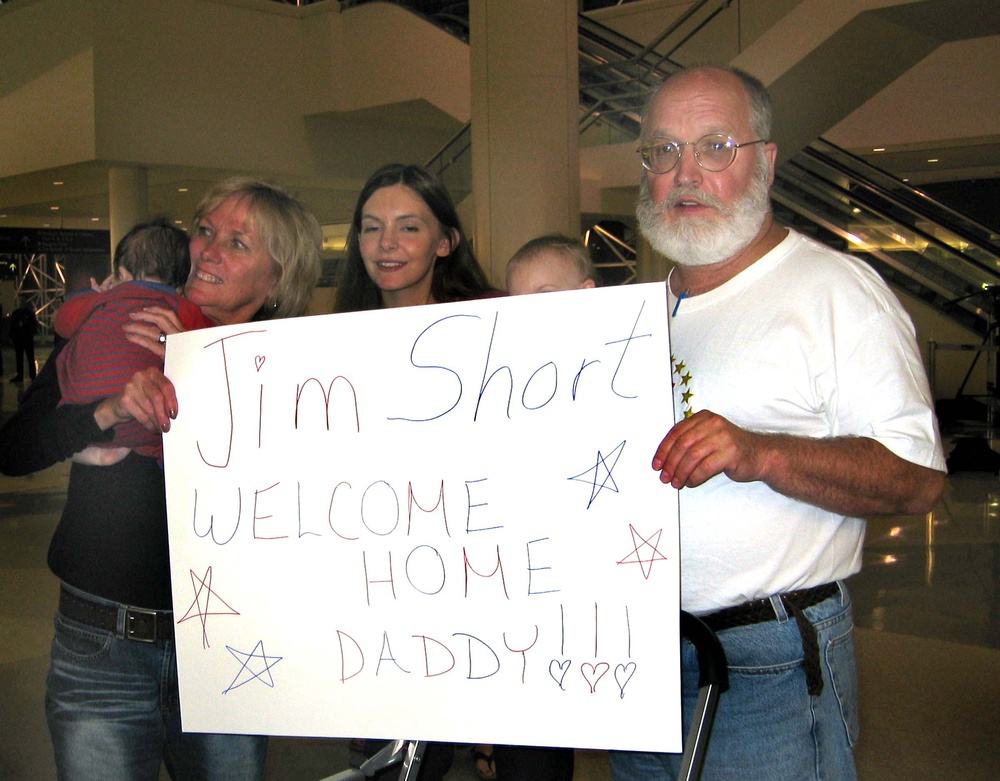 Jim Short
WELCOME
HOME
DADDY!!!